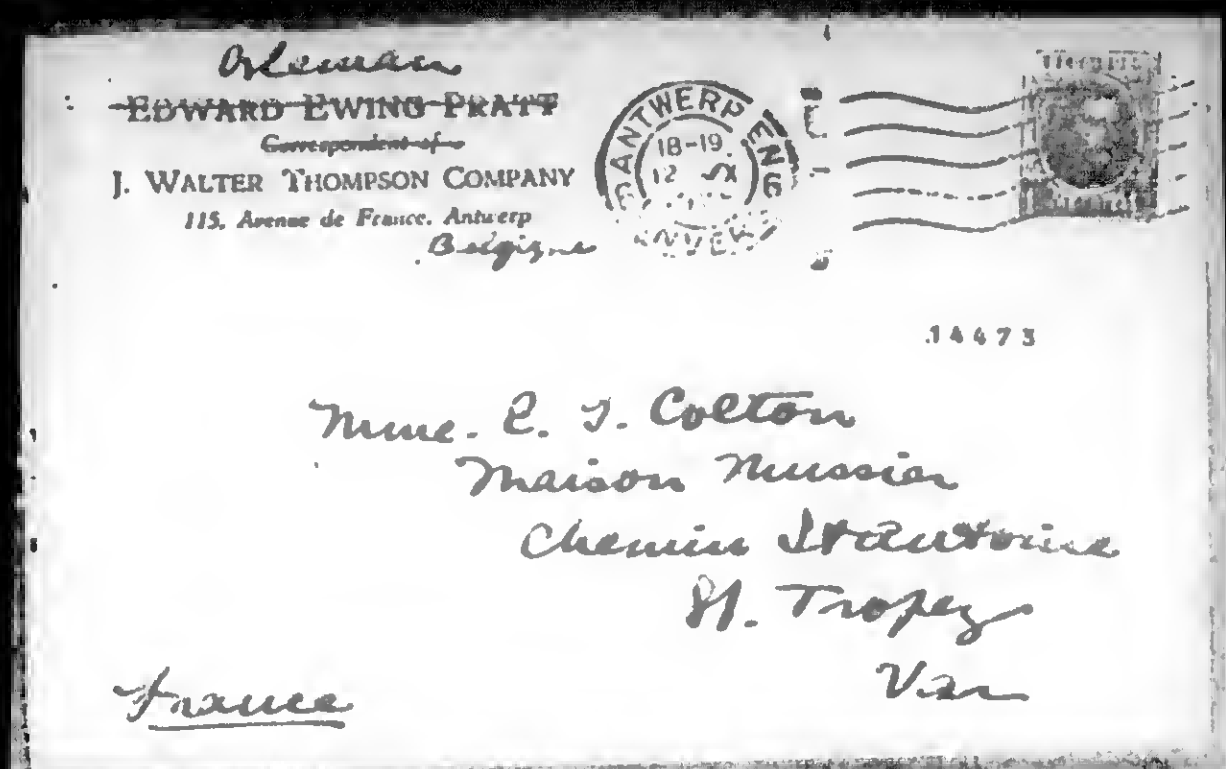 EDWARD EWING PRATT
Correspondent of
J. WALTER THOMPSON COMPANY
115, Avenue de France. Antwerp
Belgique
ANTWERP ENG
18-19
12 IX
ANVER
14473
Mme. E. T. Colton
Maison Mussier
Chemin St Antoine
St. Tropez
Var
France